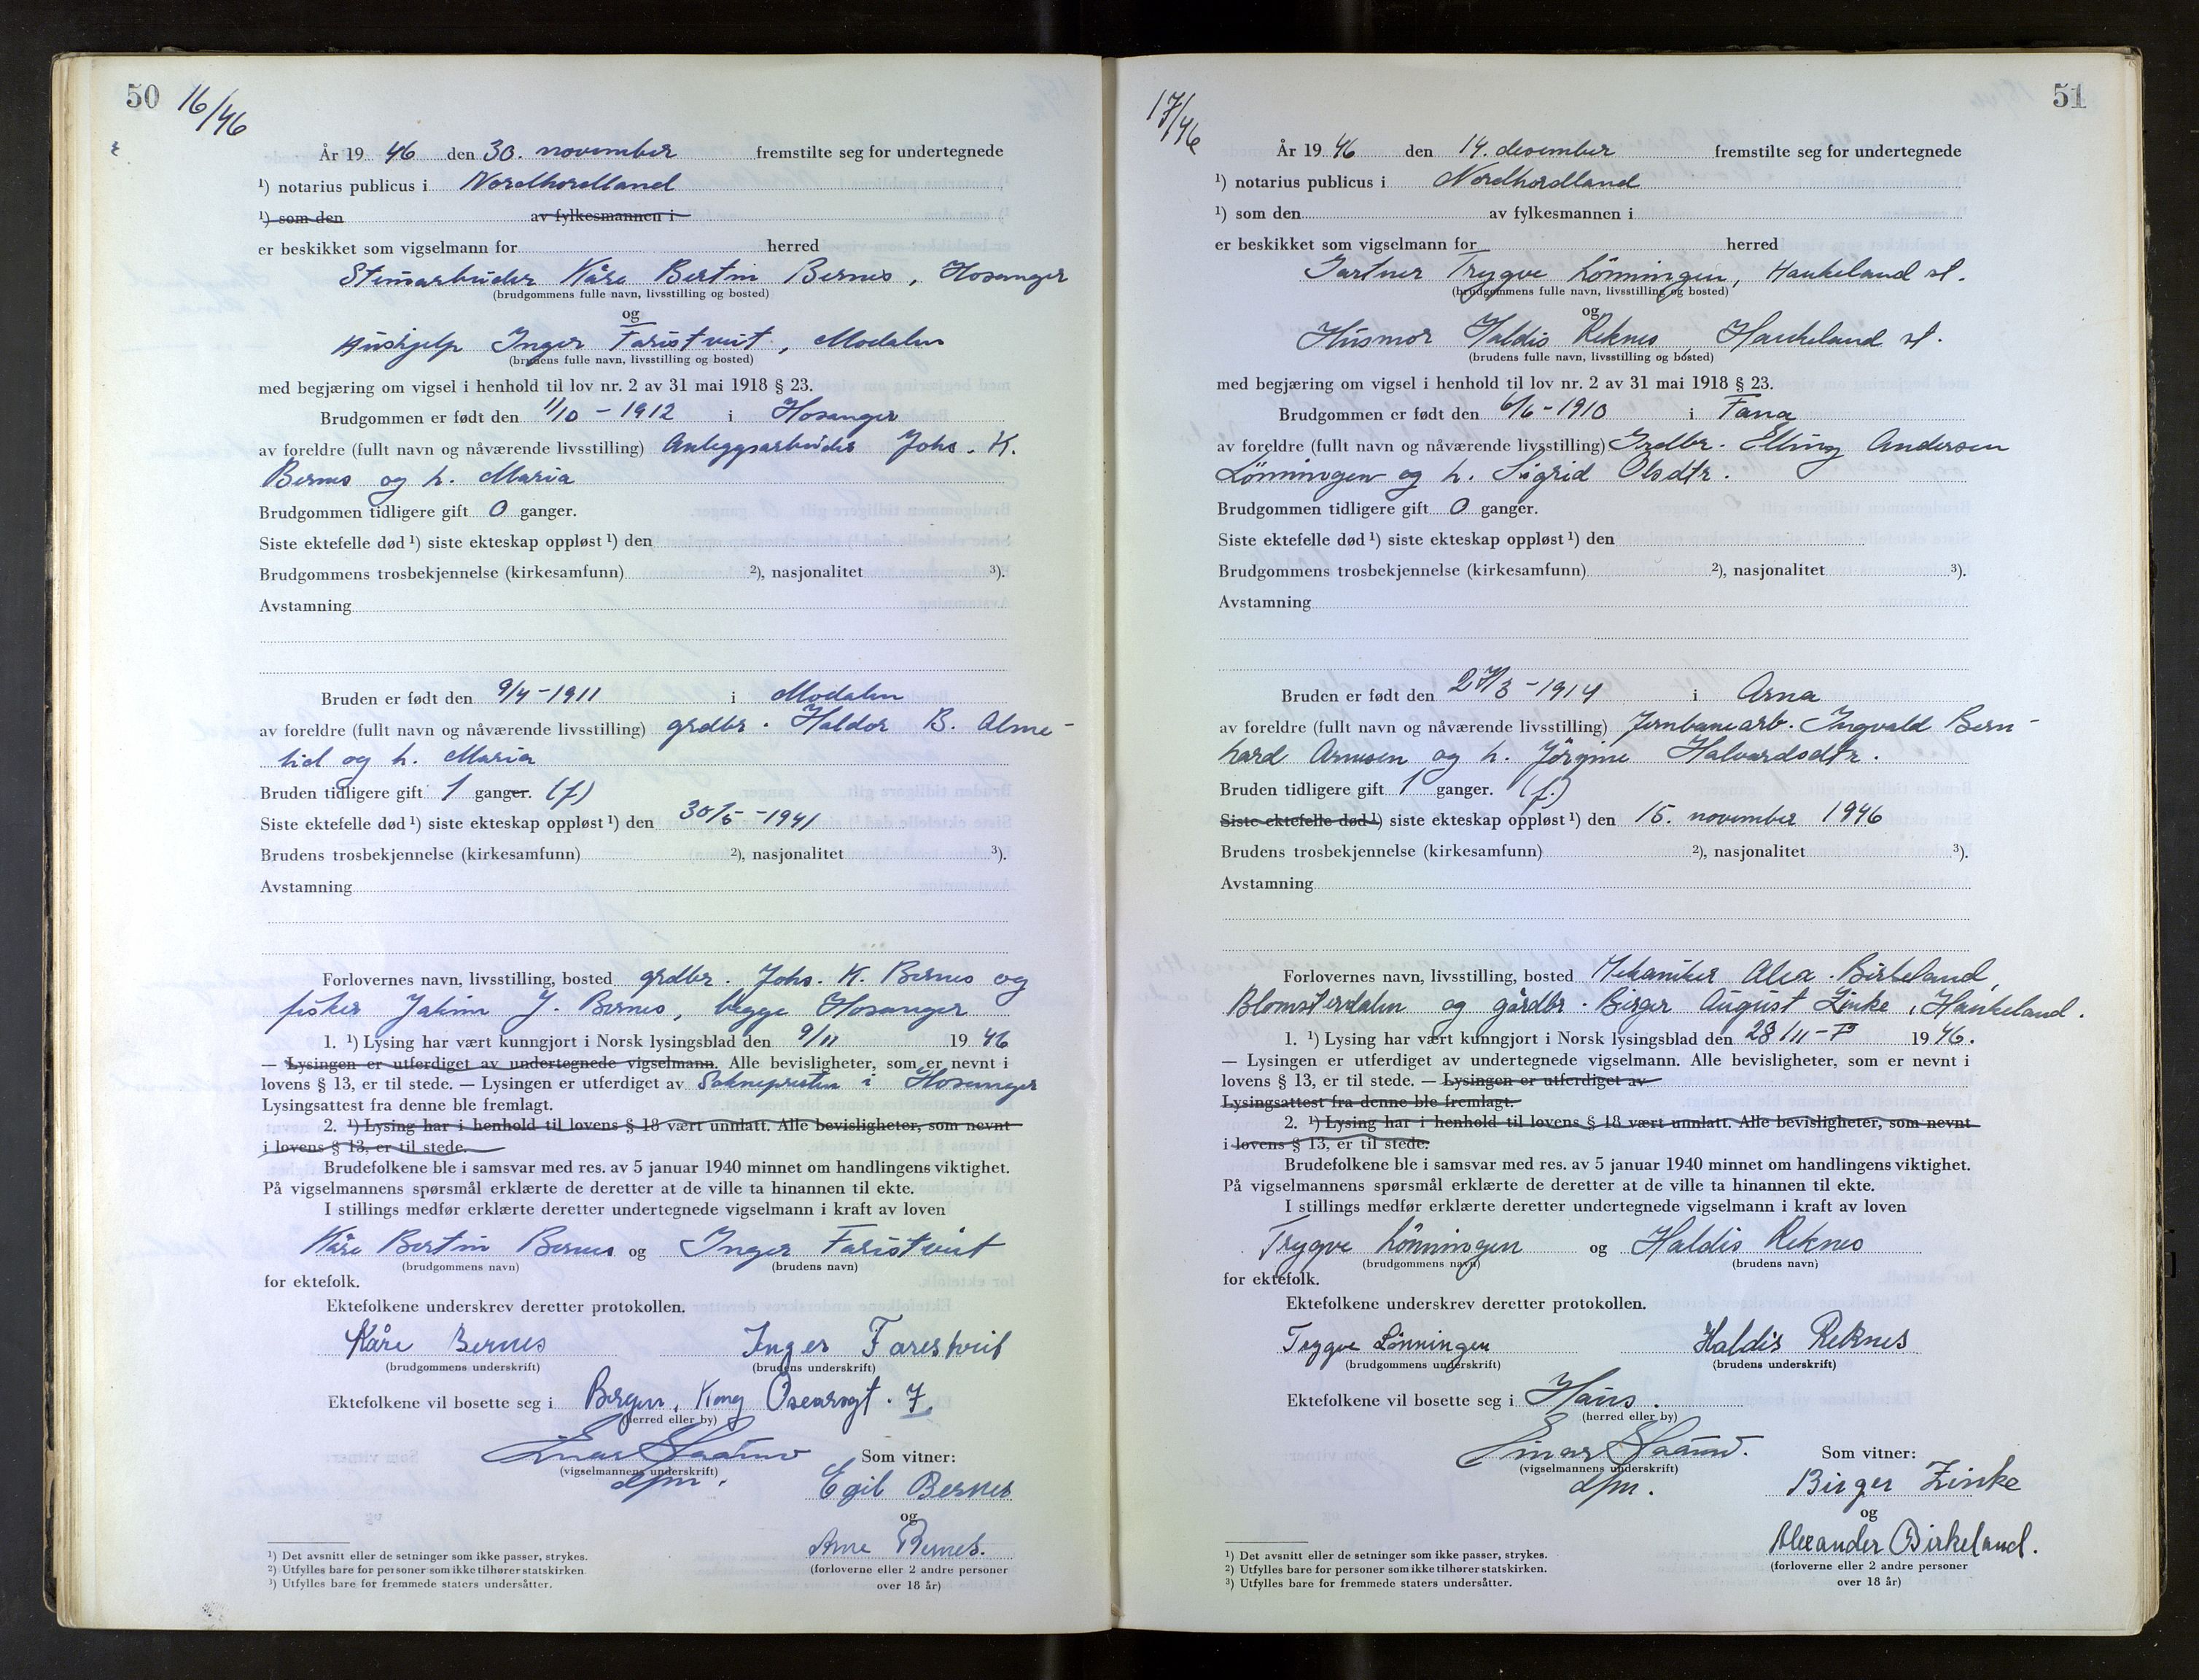 50 16/46
År 19 46 den 30. november fremstilte seg for undertegnede
¹) notarius publicus i Nordhordland
¹) som den av fylkesmannen i
er beskikket som vigselmann for herred
Stenarbeider Kåre Bertin Bernes, Hosanger
(brudgommens fulle navn, livsstilling og bosted)
og
Hushjelp Inger Farestveit, Modalen
(brudens fulle navn, livsstilling og bosted)
med begjæring om vigsel i henhold til lov nr. 2 av 31 mai 1918 § 23.
Brudgommen er født den 1/10 - 1912 i Hosanger
av foreldre (fullt navn og nåværende livsstilling) Anleggsarbeider Johs. K.
Bernes og h. Maria
Brudgommen tidligere gift 0 ganger.
Siste ektefelle død ¹) siste ekteskap oppløst ¹) den
Brudgommens trosbekjennelse (kirkesamfunn) ²), nasjonalitet ³).
Avstamning
Bruden er født den 9/4 - 1911 i Modalen
av foreldre (fullt navn og nåværende livsstilling) grdbr. Haldor B. Alme-
lid og h. Maria
Bruden tidligere gift 1 ganger. (f)
Siste ektefelle død ¹) siste ekteskap oppløst ¹) den 30/5 - 1941
Brudens trosbekjennelse (kirkesamfunn) ²), nasjonalitet ³).
Avstamning
Forlovernes navn, livsstilling, bosted grdbr. Johs. K. Bernes og
fisker Jakim J. Bernes, begge Hosanger
1. ¹) Lysing har vært kunngjort i Norsk lysingsblad den 9/11 19 46
— Lysingen er utferdiget av undertegnede vigselmann. Alle bevisligheter, som er nevnt i
lovens § 13, er til stede. — Lysingen er utferdiget av Soknepresten i Hosanger
Lysingsattest fra denne ble fremlagt.
2. ¹) Lysing har i henhold til lovens § 18 vært unnlatt. Alle bevisligheter, som nevnt
i lovens § 13, er til stede.
Brudefolkene ble i samsvar med res. av 5 januar 1940 minnet om handlingens viktighet.
På vigselmannens spørsmål erklærte de deretter at de ville ta hinannen til ekte.
I stillings medfør erklærte deretter undertegnede vigselmann i kraft av loven
Kåre Bertin Bernes og Inger Farestveit
(brudgommens navn) (brudens navn)
for ektefolk.
Ektefolkene underskrev deretter protokollen.
Kåre Bernes Inger Farestveit
(brudgommens underskrift) (brudens underskrift)
Ektefolkene vil bosette seg i Bergen, Kong Oscarsgt. 7.
(herred eller by)
Som vitner:
(vigselmannens underskrift)
dfm.
Egil Bernes
og
Arne Bernes.
(forloverne eller 2 andre personer
over 18 år)
¹) Det avsnitt eller de setninger som ikke passer, strykes.
²) Utfylles bare for personer som ikke tilhører statskirken.
³) Utfylles bare for fremmede staters undersåtter.
17/46 51
År 19 46 den 14. desember fremstilte seg for undertegnede
¹) notarius publicus i Nordhordland
¹) som den av fylkesmannen i
er beskikket som vigselmann for herred
Gartner Trygve Lönningen, Haukeland st.
(brudgommens fulle navn, livsstilling og bosted)
og
Husmor Haldis Reknes, Haukeland st.
(brudens fulle navn, livsstilling og bosted)
med begjæring om vigsel i henhold til lov nr. 2 av 31 mai 1918 § 23.
Brudgommen er født den 6/6 - 1910 i Fana
av foreldre (fullt navn og nåværende livsstilling) Grdbr. Elling Andersen
Lönningen og h. Sigrid Olsdtr.
Brudgommen tidligere gift 0 ganger.
Siste ektefelle død ¹) siste ekteskap oppløst ¹) den
Brudgommens trosbekjennelse (kirkesamfunn) ²), nasjonalitet ³).
Avstamning
Bruden er født den 27/3 - 1914 i Arna
av foreldre (fullt navn og nåværende livsstilling) Jernbanearb. Ingvald Bern-
hard Arnesen og h. Jörgine Halvardsdtr.
Bruden tidligere gift 1 ganger. (f.)
Siste ektefelle død ¹) siste ekteskap oppløst ¹) den 15. november 1946
Brudens trosbekjennelse (kirkesamfunn) ²), nasjonalitet ³).
Avstamning
Forlovernes navn, livsstilling, bosted Mekaniker Alex. Birkeland,
Blomsterdalen og gårdbr. Birger August Zinke, Haukeland.
1. ¹) Lysing har vært kunngjort i Norsk lysingsblad den 28/11 19 46.
— Lysingen er utferdiget av undertegnede vigselmann. Alle bevisligheter, som er nevnt i
lovens § 13, er til stede. — Lysingen er utferdiget av
Lysingsattest fra denne ble fremlagt.
2. ¹) Lysing har i henhold til lovens § 18 vært unnlatt. Alle bevisligheter, som nevnt
i lovens § 13, er til stede.
Brudefolkene ble i samsvar med res. av 5 januar 1940 minnet om handlingens viktighet.
På vigselmannens spørsmål erklærte de deretter at de ville ta hinannen til ekte.
I stillings medfør erklærte deretter undertegnede vigselmann i kraft av loven
Trygve Lönningen og Haldis Reknes
(brudgommens navn) (brudens navn)
for ektefolk.
Ektefolkene underskrev deretter protokollen.
Trygve Lönningen Haldis Reknes
(brudgommens underskrift) (brudens underskrift)
Ektefolkene vil bosette seg i Haus.
(herred eller by)
Som vitner:
(vigselmannens underskrift)
dfm.
Birger Zinke
og
Alexander Birkeland.
(forloverne eller 2 andre personer
over 18 år)
¹) Det avsnitt eller de setninger som ikke passer, strykes.
²) Utfylles bare for personer som ikke tilhører statskirken.
³) Utfylles bare for fremmede staters undersåtter.